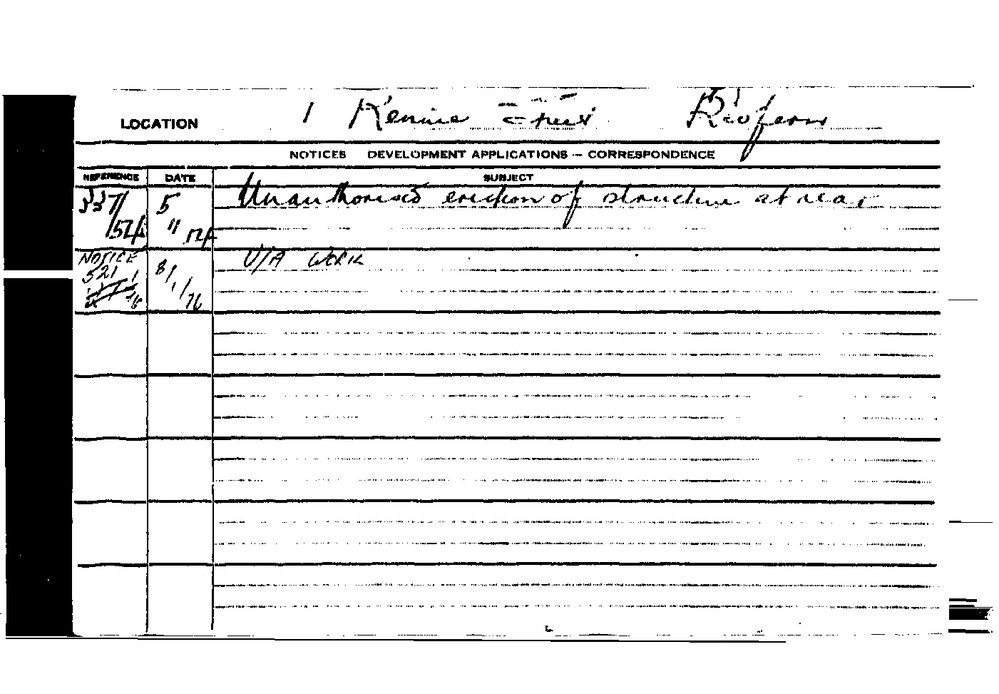 LOCATION 1 Rennie Street Redfern
NOTICES DEVELOPMENT APPLICATIONS - CORRESPONDENCE
REFERENCE DATE SUBJECT
337/ 5 Unauthorised erection of structure at rear
/54 11 54
NOTICE 8/ U/A WORK
521 1/76